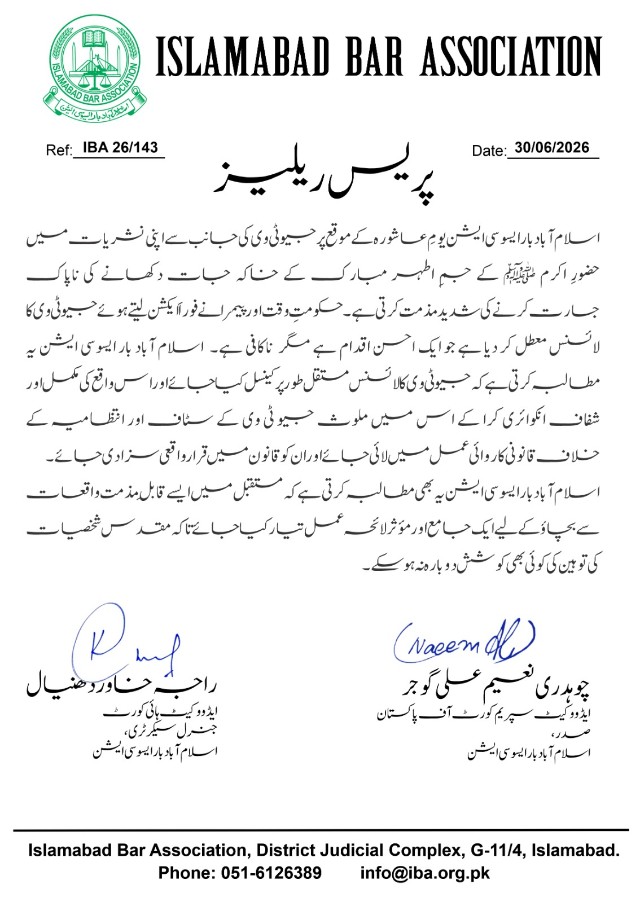 ISLAMABAD BAR ASSOCIATION
ISLAMABAD BAR ASSOCIATION
اسلام آباد بار ایسوسی ایشن
Ref: IBA 26/143
Date: 30/06/2026
پریس ریلیز
اسلام آباد بار ایسوسی ایشن یومِ عاشورہ کے موقع پر جیو ٹی وی کی جانب سے اپنی نشریات میں
حضورِ اکرم ﷺ کے جسمِ اطہر مبارک کے خاکہ جات دکھانے کی ناپاک
جسارت کرنے کی شدید مذمت کرتی ہے۔ حکومتِ وقت اور پیمرا نے فوراً ایکشن لیتے ہوئے جیو ٹی وی کا
لائسنس معطل کر دیا ہے جو ایک احسن اقدام ہے مگر ناکافی ہے۔ اسلام آباد بار ایسوسی ایشن یہ
مطالبہ کرتی ہے کہ جیو ٹی وی کا لائسنس مستقل طور پر کینسل کیا جائے اور اس واقع کی مکمل اور
شفاف انکوائری کرا کے اس میں ملوث جیو ٹی وی کے سٹاف اور انتظامیہ کے
خلاف قانونی کاروائی عمل میں لائی جائے اور ان کو قانون میں قرار واقعی سزا دی جائے۔
اسلام آباد بار ایسوسی ایشن یہ بھی مطالبہ کرتی ہے کہ مستقبل میں ایسے قابلِ مذمت واقعات
سے بچاؤ کے لیے ایک جامع اور مؤثر لائحہ عمل تیار کیا جائے تاکہ مقدس شخصیات
کی توہین کی کوئی بھی کوشش دوبارہ نہ ہو سکے۔
(Naeem Ali)
چوہدری نعیم علی گوجر
ایڈووکیٹ سپریم کورٹ آف پاکستان
صدر،
اسلام آباد بار ایسوسی ایشن
راجہ خاور دھنیال
ایڈووکیٹ ہائی کورٹ
جنرل سیکرٹری،
اسلام آباد بار ایسوسی ایشن
Islamabad Bar Association, District Judicial Complex, G-11/4, Islamabad.
Phone: 051-6126389 info@iba.org.pk